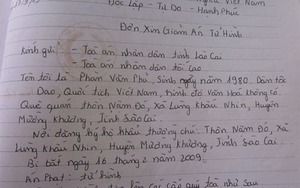 Việt Nam
Độc Lập - Tự Do - Hạnh Phúc
Đơn Xin Giảm Án Tử Hình
Kính gửi: - Toà án nhân dân tỉnh Lào Cai
- Toà án nhân dân tối cao
Tên tôi là Phan Văn Phủ, Sinh ngày năm 1980. Dân tộc
Dao, Quốc tịch Việt Nam, trình độ Văn Hoá không có.
Quê quán thôn Nấm Đó, Xã Lùng Khấu Nhin, Huyện
Mường Khương, Tỉnh Lào Cai.
Nơi đăng ký hộ khẩu thường chú: Thôn Nấm Đó, Xã
Lùng Khấu Nhin, Huyện Mường Khương, Tỉnh Lào Cai.
Bị bắt ngày 16 tháng 2 năm 2009.
Án Phạt: tử hình.
Lào Cai như sau